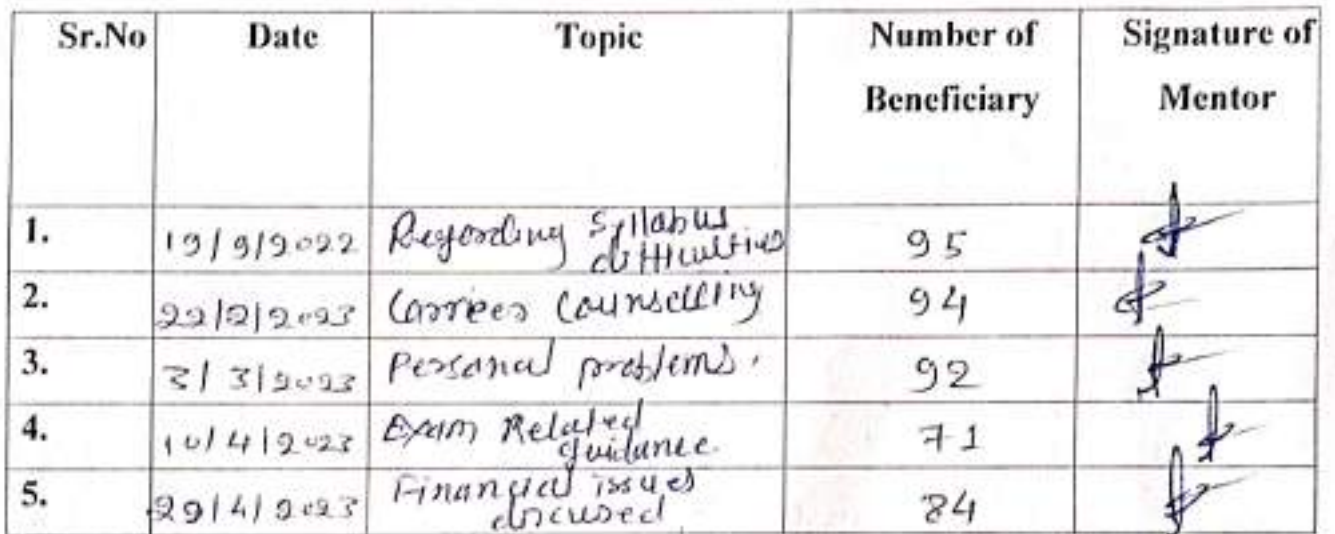 Sr.No Date Topic Number of Beneficiary Signature of Mentor
1. 19/9/2022 Regarding Syllabus difficulties 95
2. 22/2/2023 Carreer Counselling 94
3. 3/3/2023 Personal problems. 92
4. 10/4/2023 Exam Related guidance. 71
5. 29/4/2023 Financial issues discused 84